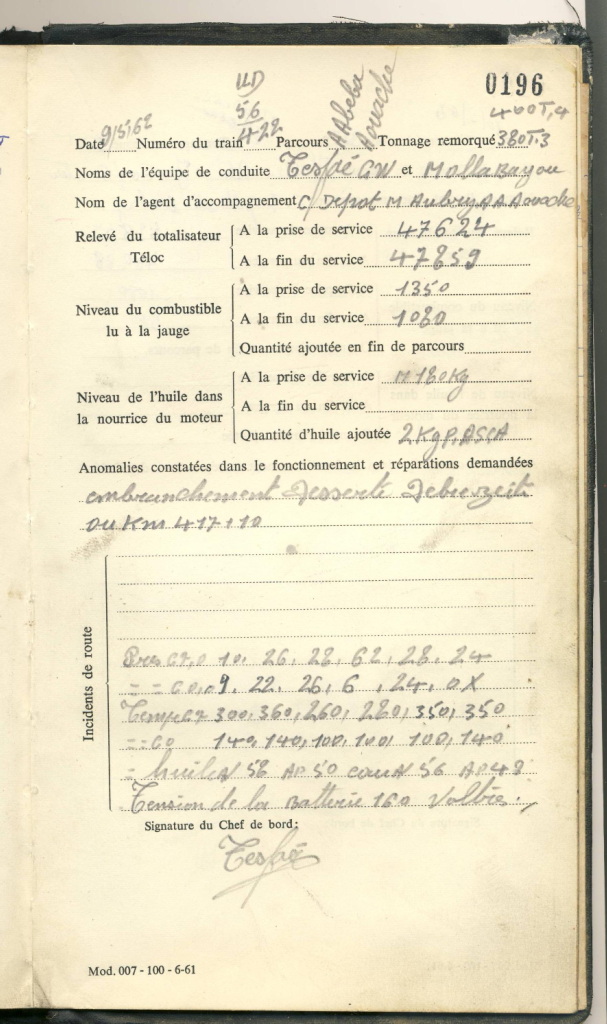 0196
UD
56
400T,4
Date 9/5/62 Numéro du train 422 Parcours AAbeba Aouache Tonnage remorqué 380T.3
Noms de l'équipe de conduite Tesfé GW et Molla Bayou
Nom de l'agent d'accompagnement C/Depot M Aubry AA Aouache
Relevé du totalisateur Téloc
A la prise de service 47624
A la fin du service 47859
Niveau du combustible lu à la jauge
A la prise de service 1350
A la fin du service 1080
Quantité ajoutée en fin de parcours
Niveau de l'huile dans la nourrice du moteur
A la prise de service M 180Kg
A la fin du service
Quantité d'huile ajoutée 2Kg P. ASCA
Anomalies constatées dans le fonctionnement et réparations demandées
embranchement Desserte Debrezeit
ou Km 417,110
Incidents de route
10, 26, 28, 62, 28, 24
9, 22, 26, 6, 24, 0X
300, 360, 260, 280, 350, 350
140, 140, 100, 100, 100, 140
= huile N 58 AP 50 eau N 56 AP 48
Tension de la Batterie 160 Voltes.
Signature du Chef de bord:
Tesfé
Mod. 007 - 100 - 6-61